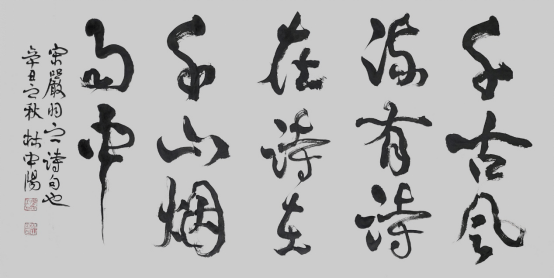 千古风
流有诗
在诗在
千山烟
雨中
宋嚴羽之诗句也
辛丑之秋 中陽